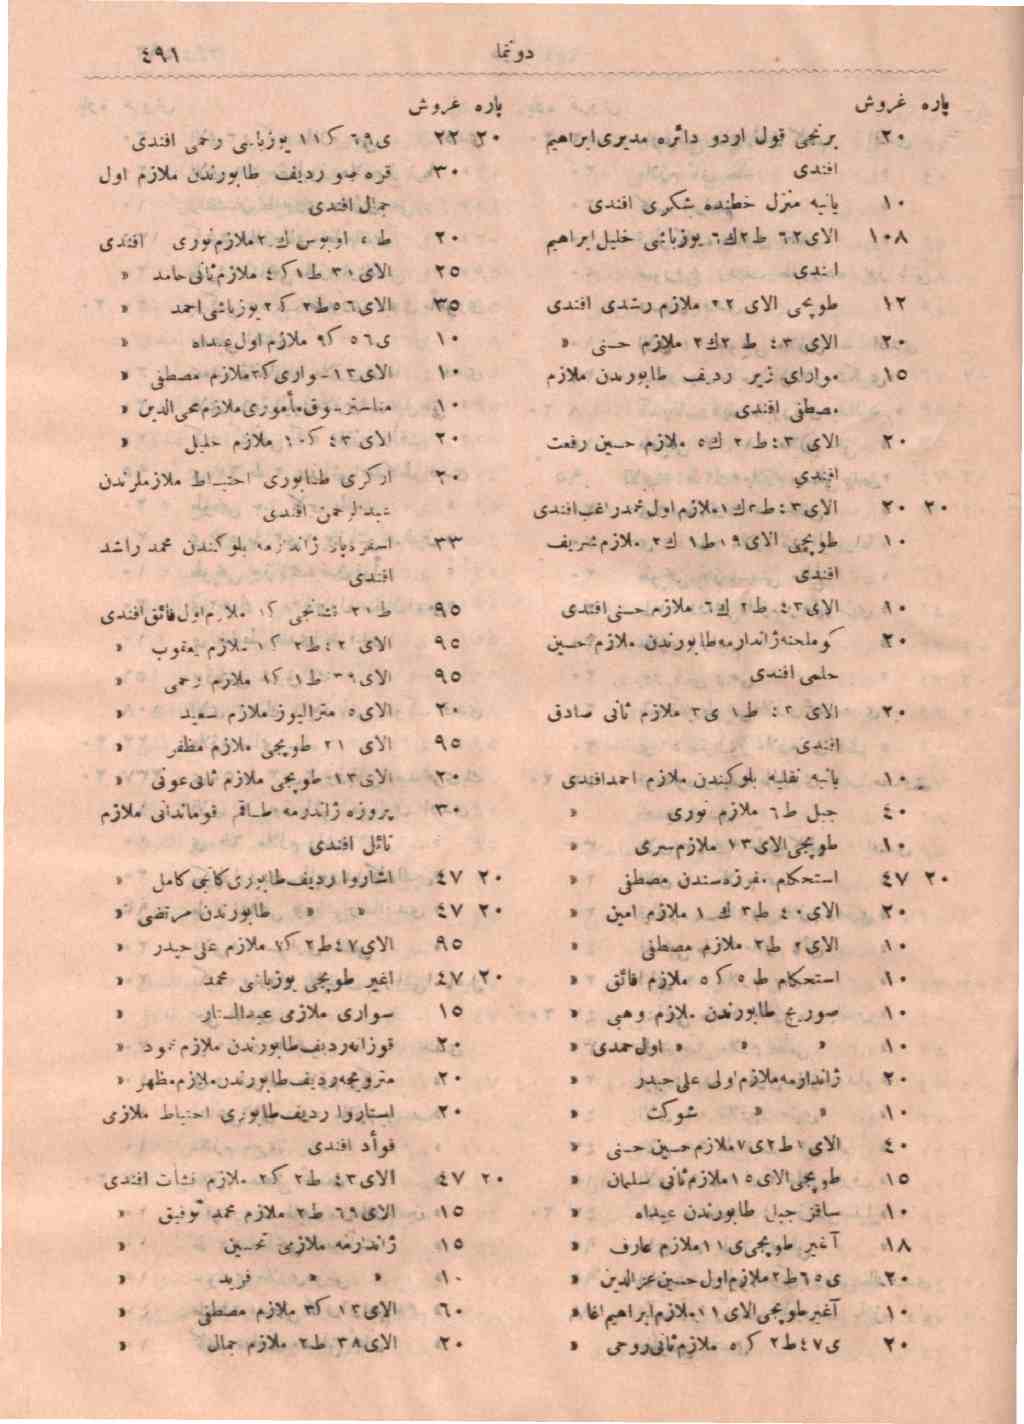 دوننما ٤٩١
پاره غروش
٢٠ برنجی قول اردو دائره مدیری ابراهیم
افندی
١٠ یانیه منزل خطنده شکری افندی
١٠٨ الای ٦٢ ط ٢ ك ٦ یوزباشی خلیل ابراهیم
افندی
١٢ طوپجی الای ٢٢ ملازم رشدی افندی
٢٠ الای ٤٣ ط ٢ ك ٢ ملازم حسنی »
١٥ موارای زیر ردیف طابورندن ملازم
مصطفی افندی
٢٠ الای ٤٣ ط ٢ ك ٥ ملازم حسین رفعت
افندی
٢٠ ٢٠ الای ٤٣ ط ٢ ك ١ ملازم اول محمد راغب افندی
١٠ طوپجی الای ١٩ ط ١ ك ٢ ملازم شریف
افندی
١٠ الای ٤٣ ط ٢ ك ٦ ملازم حسنی افندی
٢٠ کوملجنه ژاندارمه طابورندن ملازم حسین
حلمی افندی
٢٠ الای ٤٢ ط ١ ی ٣ ملازم ثانی صادق
افندی
١٠ یانیه نقلیه بلوکیندن ملازم احمد افندی
٤٠ جبل ط ٦ ملازم نوری »
١٠ طوپجی الای ١٣ ملازم سری »
٢٠ ٤٧ استحکام مفرزه سندن مصطفی »
٢٠ الای ٤٠ ط ٣ ك ١ ملازم امین »
١٠ الای ٢ ط ٢ ملازم مصطفی »
١٠ استحکام ط ٥ ك ٥ ملازم فائق »
١٠ صوریج طابورندن ملازم وهبی »
١٠ » » » اول حمدی »
٢٠ ژاندارمه ملازم اولی علی حیدر »
١٠ » » شوکت »
٤٠ الای ١ ط ٢ ی ٧ ملازم حسین حسنی »
١٥ طوپجی الای ١٥ ملازم ثانی سلیمان »
١٠ ساقز جبل طابورندن عبدالله »
١٨ آغیر طوپجی ی ١١ ملازم عارف »
٢٠ ی ٦٥ ط ٢ ملازم اول حسین عزالدین »
١٠ آغیر طوپجی الای ١١ ملازم ابراهیم اغا »
٢٠ ی ٤٧ ط ٢ ك ٥ ملازم ثانی روحی »
پاره غروش
٢٠ ٢٢ ی ٦٩ ك ١١ یوزباشی رحمی افندی
٣٠ قره صو ردیف طابورندن ملازم اول
جمال افندی
٢٠ ط اوبوس ك ٢ ملازم نوری افندی
٢٥ الای ٣٠ ط ١ ك ٤ ملازم ثانی حامد »
٣٥ الای ٥٦ ط ٢ ك ٢ یوزباشی احمد »
١٠ ی ٥٦ ك ٩ ملازم اول عبدالله »
١٠ الای ١٣ سواری ك ٣ ملازم مصطفی »
١٠ مناستر سوق مأموری ملازم محی الدین »
٢٠ الای ٤٣ ك ١٠ ملازم خلیل »
٢٠ ارکری طابوری احتیاط ملازملرندن
عبدالرحمن افندی
٣٣ اسفردیار ژاندارمه بلوکیندن محمد راشد
افندی
٩٥ ط ٢١ نشانجی ك ١ ملازم اول فائق افندی
٩٥ الای ٤٢ ط ٢ ك ١ ملازم یعقوب »
٩٥ الای ٣٩ ط ١ ك ٩ ملازم رحمی »
٢٠ الای ٥ مترالیوز ملازم سعید »
٩٥ الای ٢١ طوپجی ملازم مظفر »
٢٠ الای ١٣ طوپجی ملازم ثانی عونی »
٣٠ پروزه ژاندرمه طاقم قوماندانی ملازم
نائل افندی
٢٠ ٤٧ اشاروا ردیف طابوری کاتبی کامل »
٢٠ ٤٧ » » طابورندن مرتضی »
٩٥ الای ٤٧ ط ٢ ك ٧ ملازم علی حیدر »
٢٠ ٤٧ اغیر طوپجی یوزباشی محمد »
١٥ سواری ملازمی عبدالستار »
٢٠ قوزانه ردیف طابورندن ملازم محمود »
٢٠ متروبچه ردیف طابورندن ملازم مظهر »
٢٠ استاروا ردیف طابوری احتیاط ملازمی
فوأد افندی
٢٠ ٤٧ الای ٤٣ ط ٢ ك ٢ ملازم نشأت افندی
١٥ الای ٦٩ ط ٢ ملازم محمد توفیق »
١٥ ژاندارمه ملازمی تحسین »
١٠ » » فرید »
٦٠ الای ١٣ ك ٣ ملازم مصطفی »
٢٠ الای ٣٨ ط ٢ ملازم جمال »